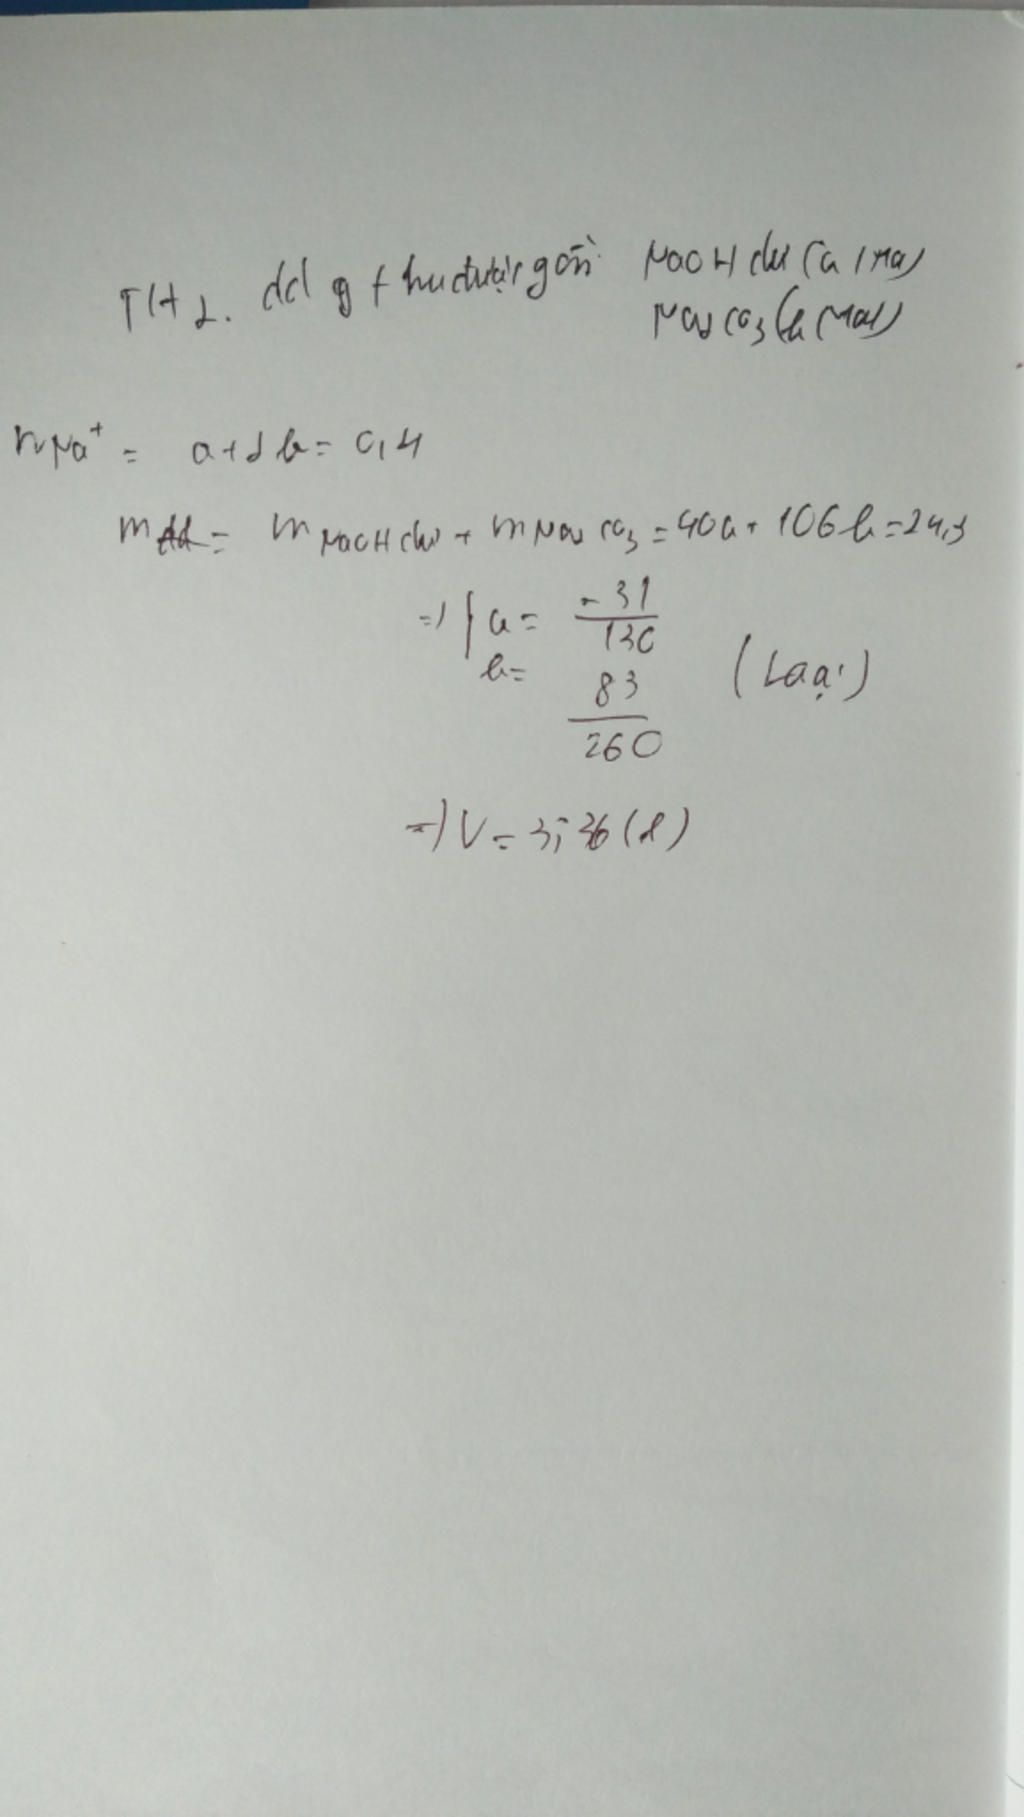 TH2. dd g thu được gồm: NaOH dư (a mol)
Na2CO3 (b mol)
nNa+ = a+2b = 0,4
m = mNaOH dư + mNa2CO3 = 40a + 106b = 24,3
=> { a = -31/130
b = 83/260 (Loại)
=> V = 3,36 (l)